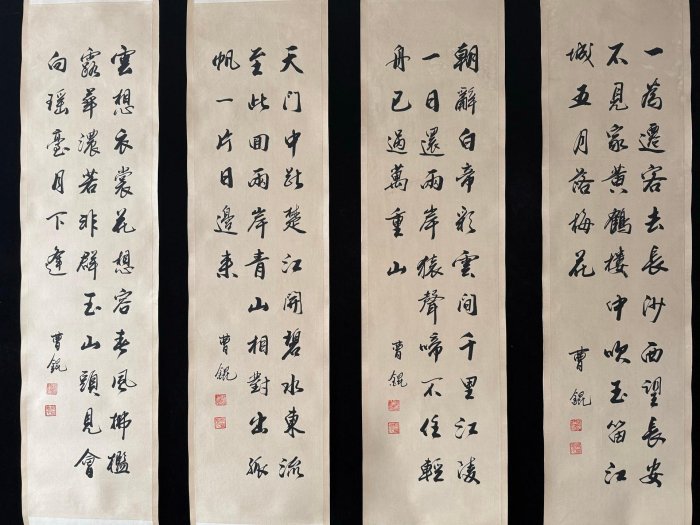 一為遷客去長沙西望長安
不見家黃鶴樓中吹玉笛江
城五月落梅花
曹錕
朝辭白帝彩雲間千里江陵
一日還兩岸猿聲啼不住輕
舟已過萬重山
曹錕
天门中断楚江開碧水東流
至此回兩岸青山相對出孤
帆一片日邊来
曹錕
雲想衣裳花想容春風拂檻
露華濃若非群玉山頭見會
向瑤臺月下逢
曹錕